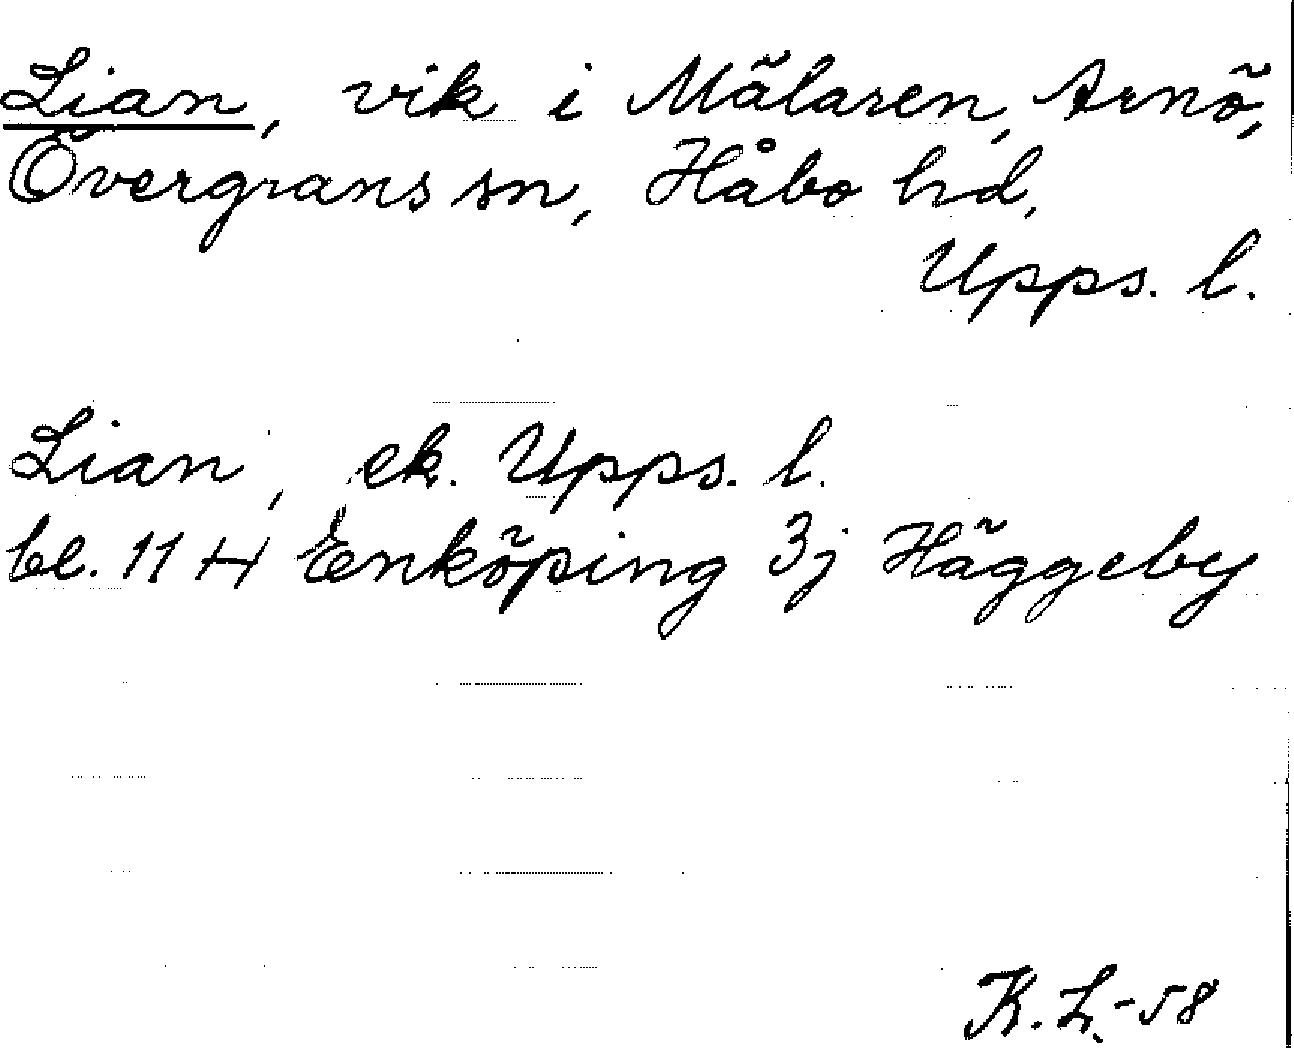 Lian, vik i Mälaren, Arnö,
Övergrans sn, Håbo hd,
Upps. l.
Lian, ek. Upps. l.
bl. 11 H Enköping 3j Häggeby
K. L.-58